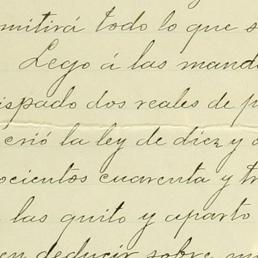 mitirá todo lo que s
Lego á las mand
ispado dos reales de p
crió la ley de diez y
ocientos cuarenta y tr
las quito y aparto
en deducir sobre